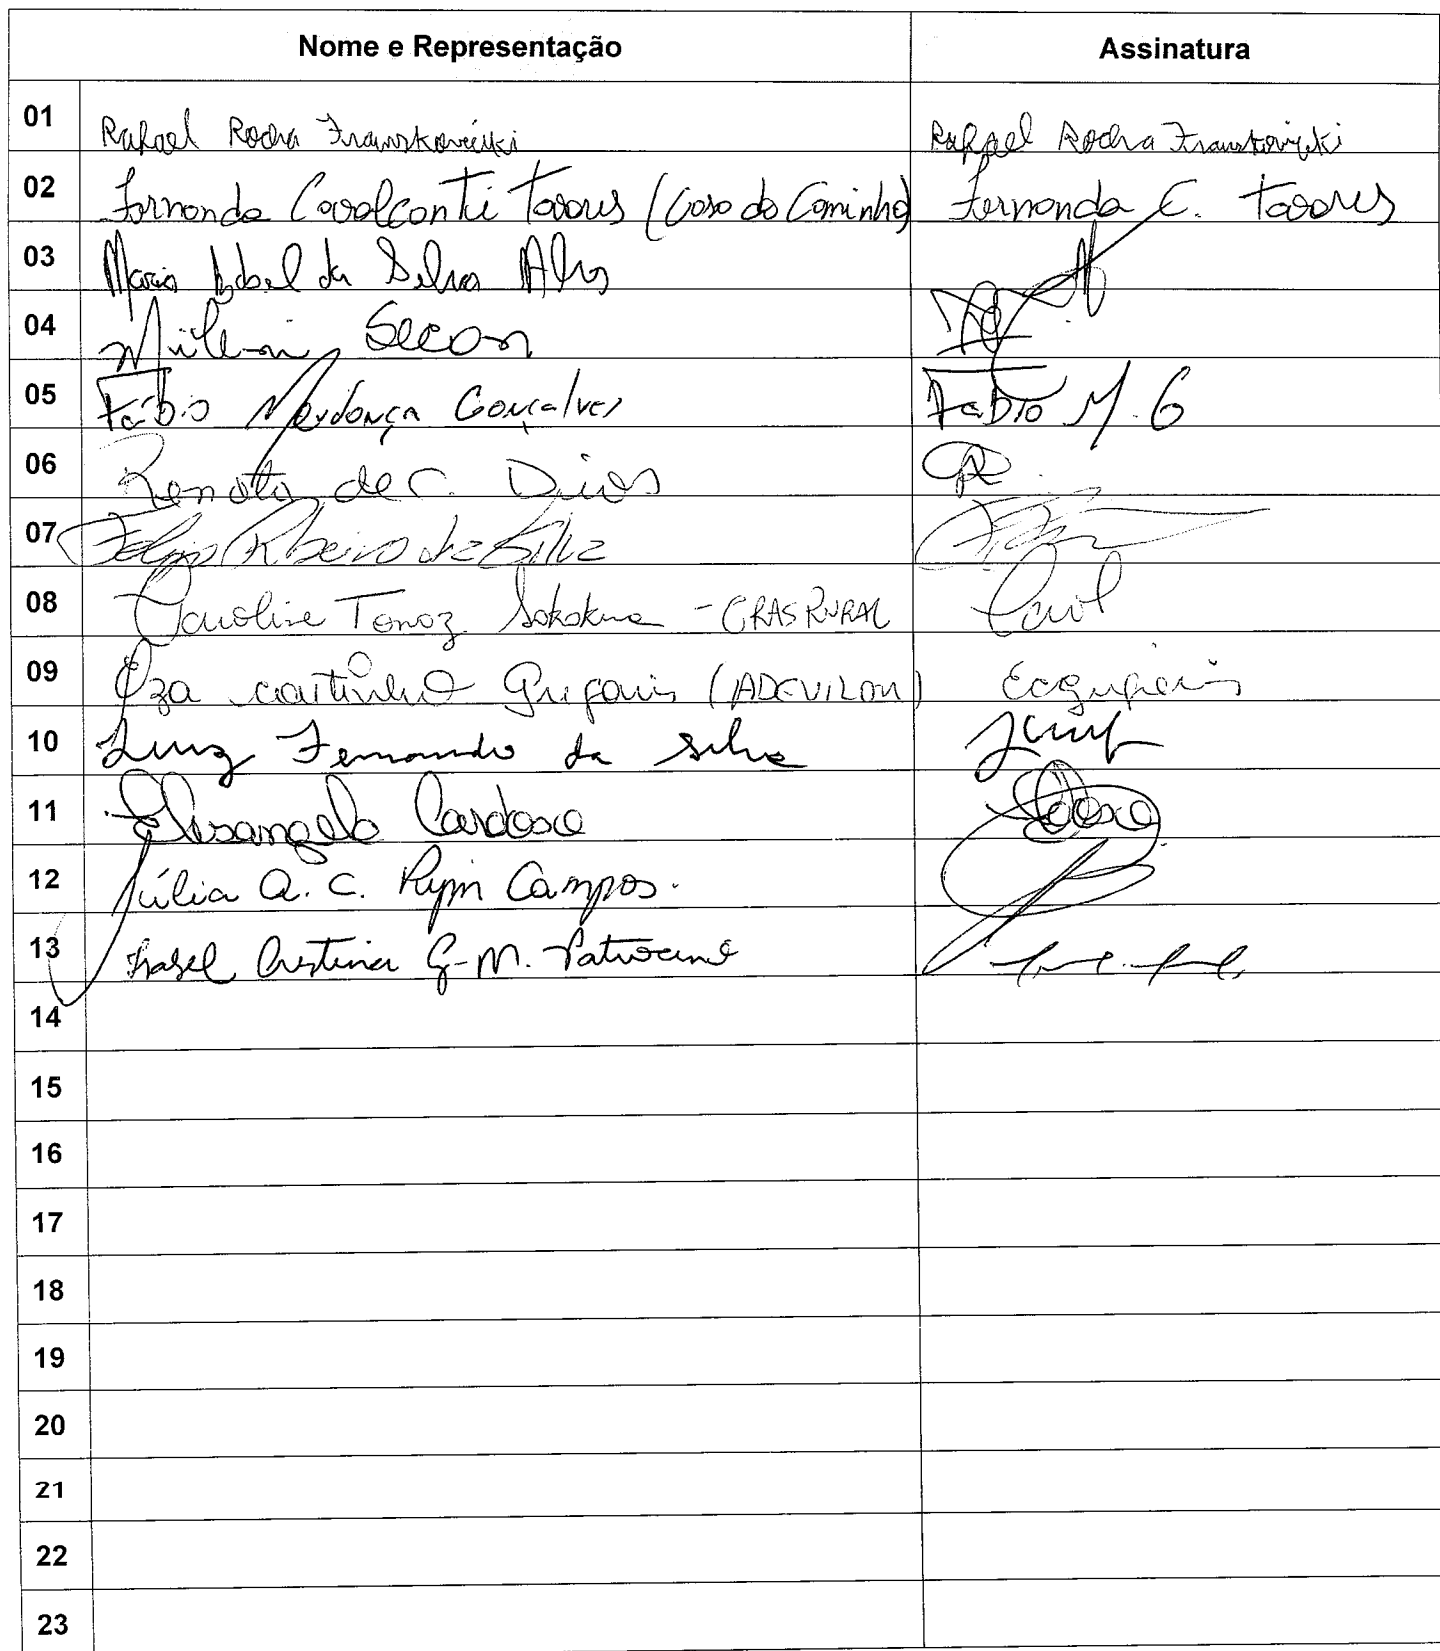 Nome e Representação Assinatura
01 Rafael Rocha Rafael Rocha
02 Fernanda Cavalcanti Tavares (Casa do Caminho) Fernanda C. Tavares
03 Maria Isabel da Silva Alves
04
05 Fábio Mendonça Gonçalves Fabio M. G
06 Renata de C. Dias
07 Felipe Ribeiro da Silva
08 Caroline Tomaz - CRAS RURAL Carol
09 (ADEVILON)
10 Luiz Fernando da Silva
11 Elisangela Cardoso
12 Júlia A. C. Campos.
13 Isabel Cristina G. M. Patrocino
14
15
16
17
18
19
20
21
22
23